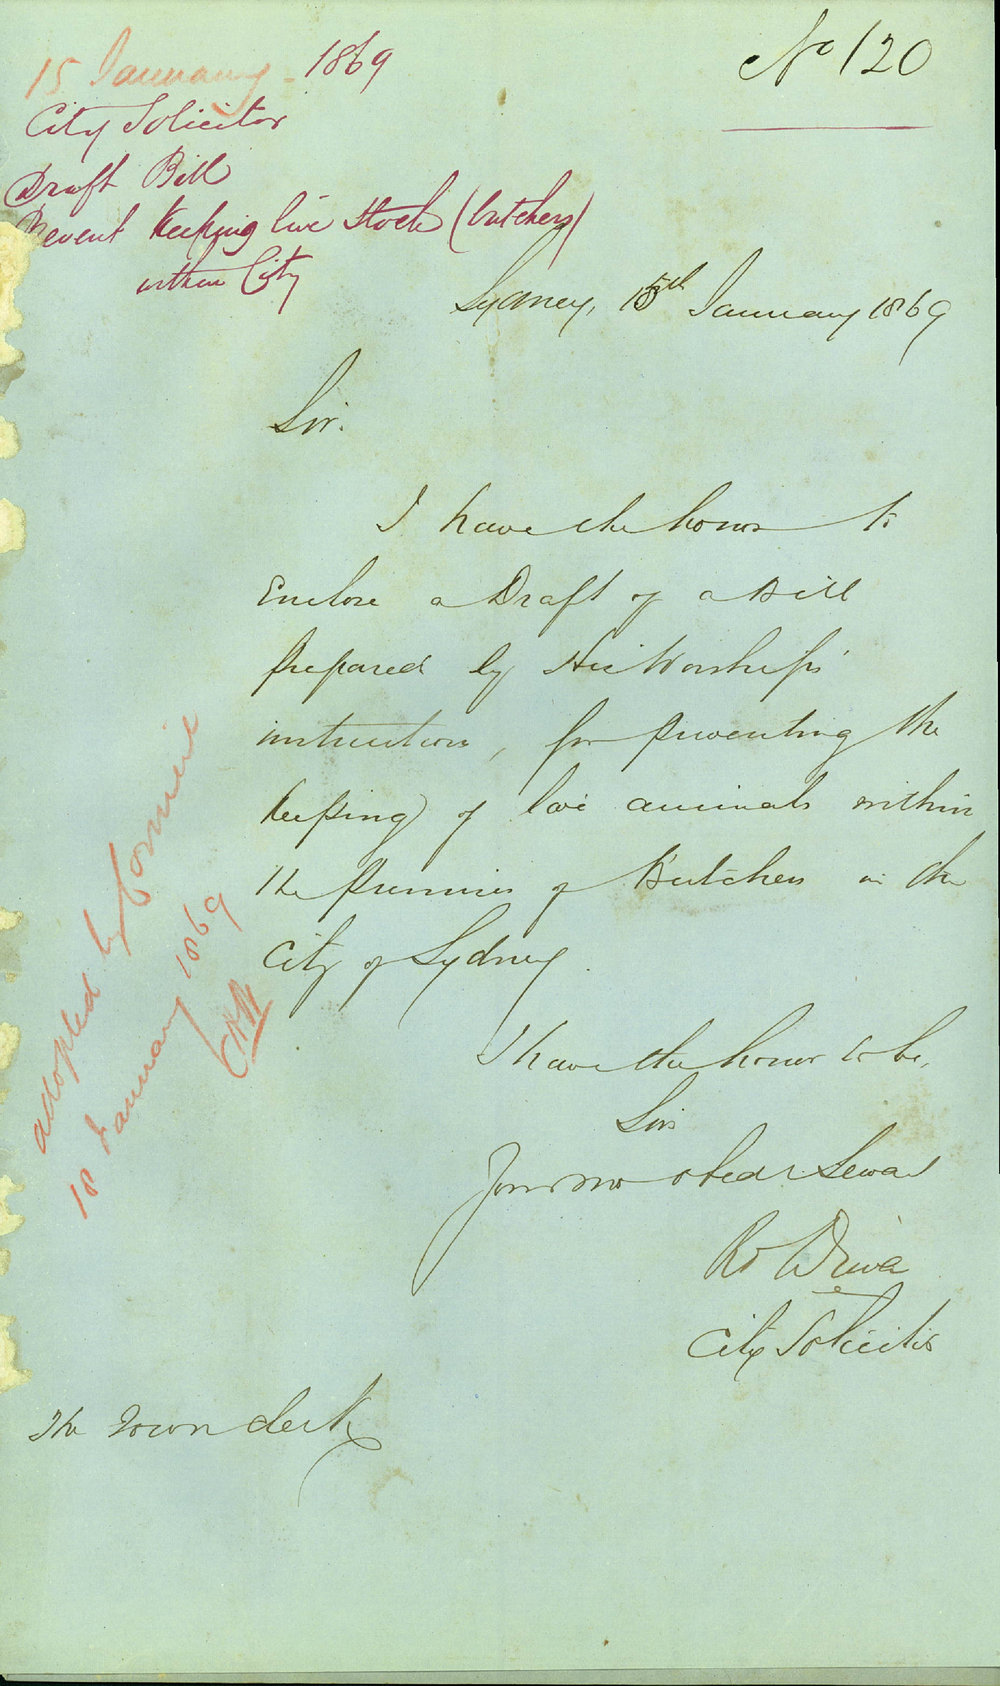 15 January - 1869
No 120
City Solicitor
Draft Bill
Prevent Keeping live Stock (butchers)
within City
Sydney, 15th January 1869
Sir.
I have the honor to
Enclose a Draft of a Bill
prepared by His Worship's
instructions, for preventing the
Keeping of live animals within
the premises of Butchers in the
City of Sydney.
I have the honor to be,
Sir
Your most obedt Servant
Rd Driver
City Solicitor
The Town Clerk
adopted by Council
18 January 1869